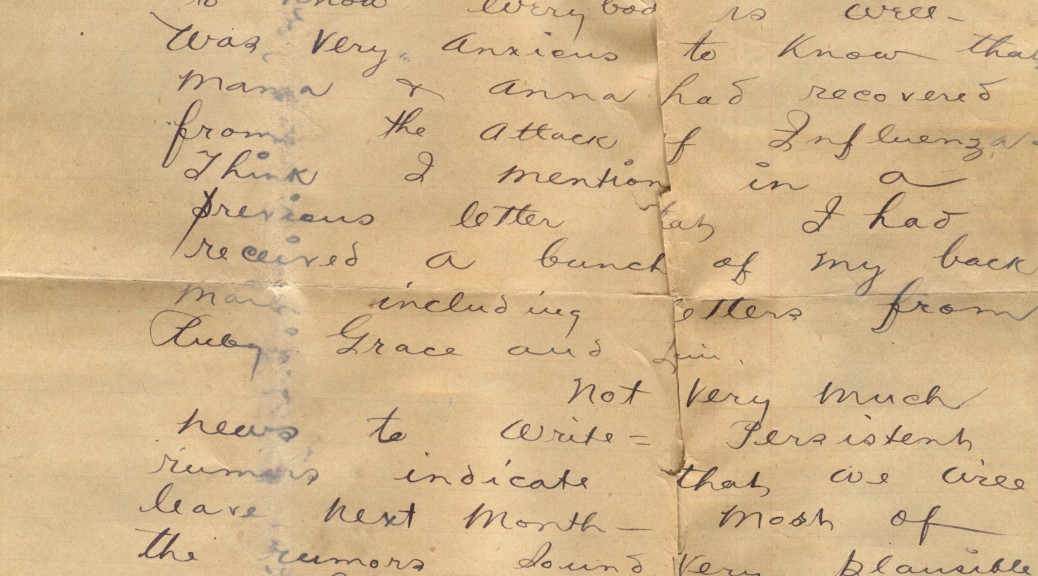 to know everybod is well -
Was very anxious to know that
Mama & Anna had recovered
from the attack of Influenza -
Think I mention in a
previous letter that I had
received a bunch of my back
mail including letters from
Ruby Grace and
Not very much
news to write = Persistent
rumors indicate that we will
leave next month - Most of
the rumors sound very plausible